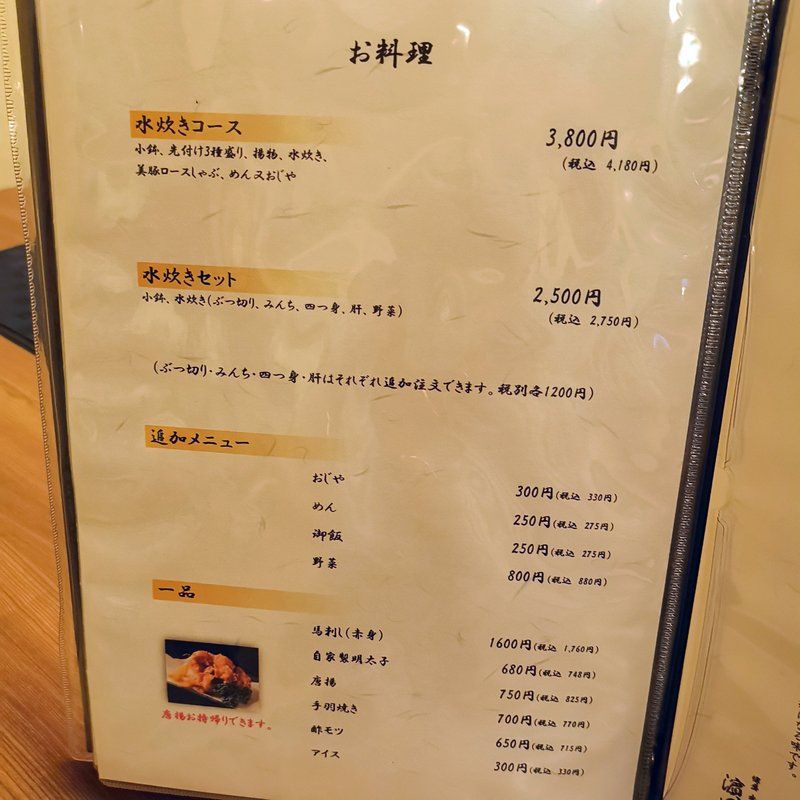 お料理
水炊きコース
3,800円
小鉢、先付け3種盛り、揚物、水炊き、
(税込 4,180円)
美豚ロースしゃぶ、めん又おじや
水炊きセット
2,500円
小鉢、水炊き(ぶつ切り、みんち、四つ身、肝、野菜)
(税込 2,750円)
(ぶつ切り・みんち・四つ身・肝はそれぞれ追加注文できます。税別各1200円)
追加メニュー
おじや 300円(税込 330円)
めん 250円(税込 275円)
御飯 250円(税込 275円)
野菜 800円(税込 880円)
一品
馬刺し(赤身) 1600円(税込 1,760円)
自家製明太子 680円(税込 748円)
唐揚 750円(税込 825円)
手羽焼き 700円(税込 770円)
酢モツ 650円(税込 715円)
アイス 300円(税込 330円)
唐揚お持帰りできます。